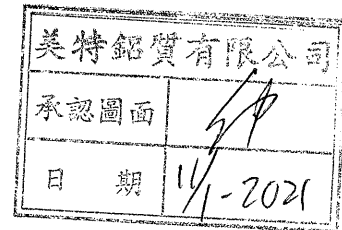 美特鋁質有限公司
承認圖面
日期 11/1-2021